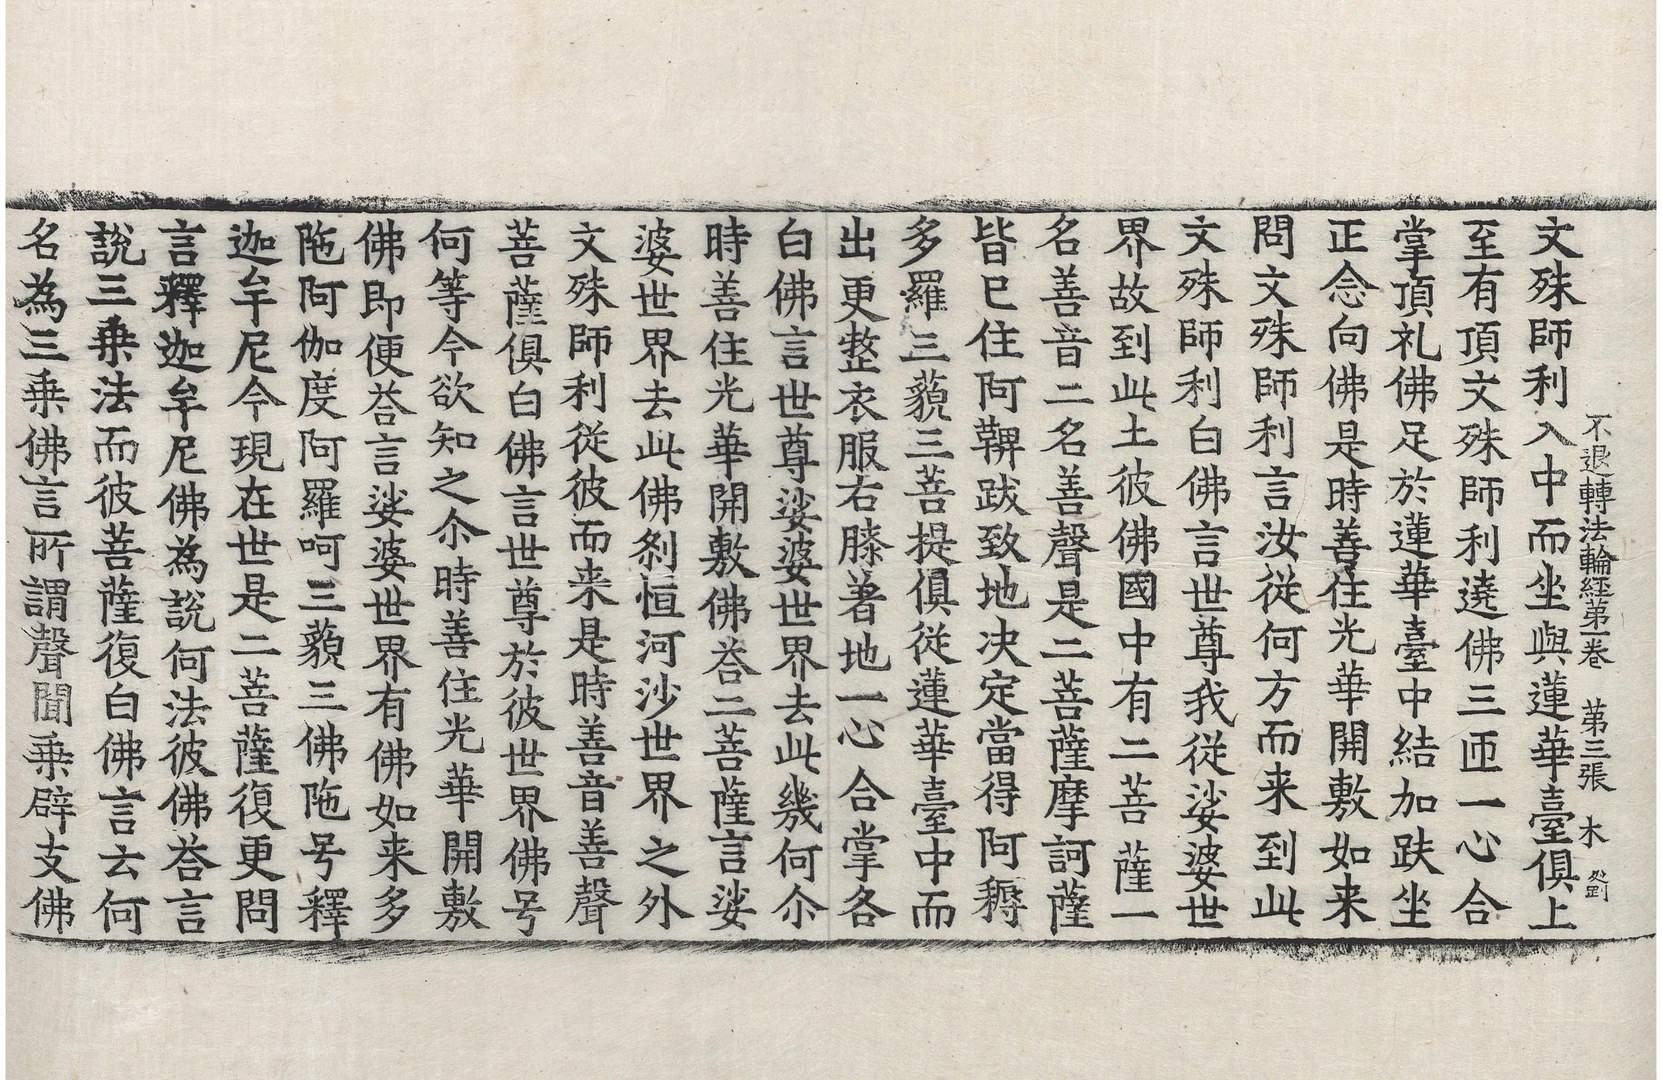 不退轉法輪経第一卷　第三張　木　劉
文殊師利入中而坐與蓮華臺俱上
至有頂文殊師利遶佛三匝一心合
掌頂礼佛足於蓮華臺中結加趺坐
正念向佛是時善住光華開敷如来
問文殊師利言汝従何方而来到此
文殊師利白佛言世尊我従娑婆世
界故到此土彼佛國中有二菩薩一
名善音二名善聲是二菩薩摩訶薩
皆已住阿鞞跋致地决定當得阿耨
多羅三藐三菩提俱従蓮華臺中而
出更整衣服右膝著地一心合掌各
白佛言世尊娑婆世界去此幾何尒
時善住光華開敷佛荅二菩薩言娑
婆世界去此佛刹恒河沙世界之外
文殊師利従彼而来是時善音善聲
菩薩俱白佛言世尊於彼世界佛号
何等今欲知之尒時善住光華開敷
佛即便荅言娑婆世界有佛如来多
陁阿伽度阿羅呵三藐三佛陁号釋
迦牟尼今現在世是二菩薩復更問
言釋迦牟尼佛為說何法彼佛荅言
說三乗法而彼菩薩復白佛言云何
名為三乗佛言所謂聲聞乗辟支佛